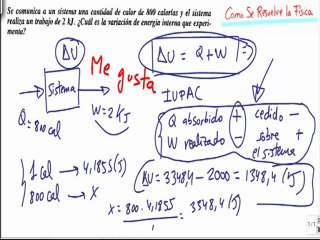 Se comunica a un sistema una cantidad de calor de 800 calorías y el sistema
realiza un trabajo de 2 kJ. ¿Cuál es la variación de energía interna que experi-
mento?
Como Se Resuelve la Física
ΔU
ΔU = Q+W
Me gusta
Sistema
Q=800 cal
W=2KJ
IUPAC
Q absorbido + cedido -
W realizado - sobre +
el sistema
1 cal → 4,1855(J)
800 cal → X
ΔU = 3348,4 - 2000 = 1348,4 (J)
X = 800·4,1855 = 3348,4 (J)
1
1/1